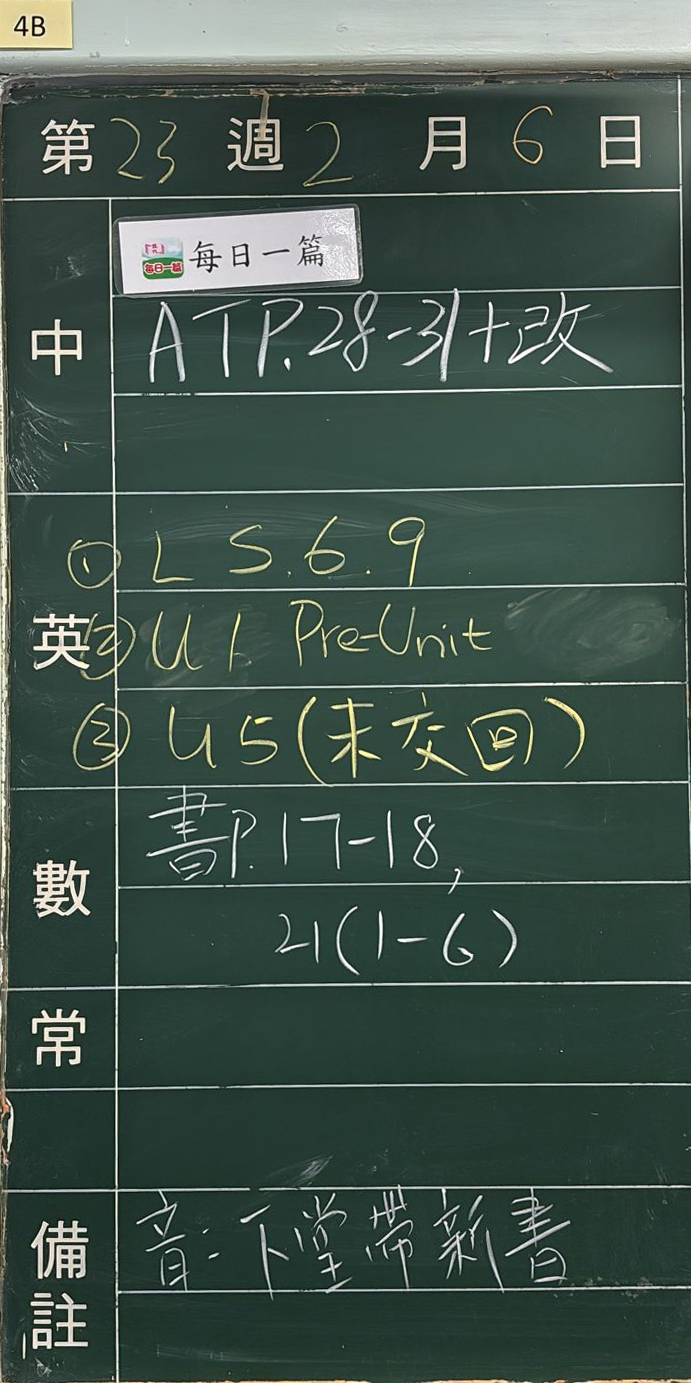 4B
第23週2月6日
每日一篇 每日一篇
中 ATP.28-31+改
① L S.6.9
英 ② U1 Pre-Unit
③ U5(未交回)
書P.17-18,
數 21(1-6)
常
備註 音：下堂帶新書